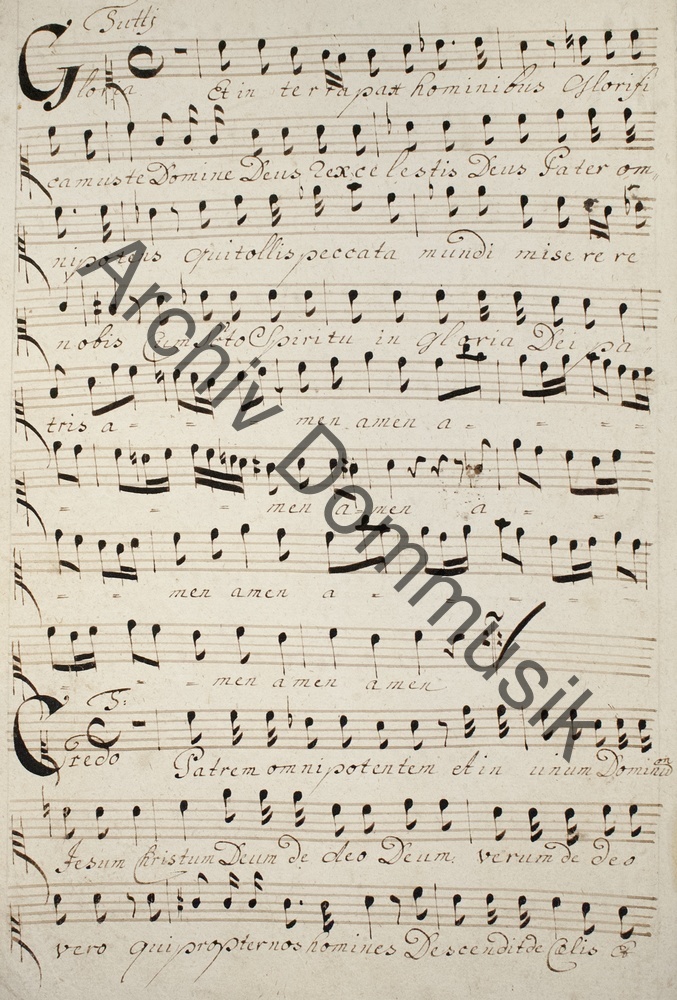 Tutti
Gloria Et in terra pax hominibus Glorifi
camus te Domine Deus Rex celestis Deus Pater om,
nipotens qui tollis peccata mundi miserere
nobis Cum Scto Spiritu in gloria Dei pa
tris a - - men amen a - - - -
- - - men amen a - -
- - men amen a - - - - -
- - - men amen amen
T:
Credo Patrem omnipotentem et in unum Dominum
Jesum Christum Deum de deo Deum: verum de deo
vero qui propter nos homines Descendit de Cœlis et
Archiv Dommusik